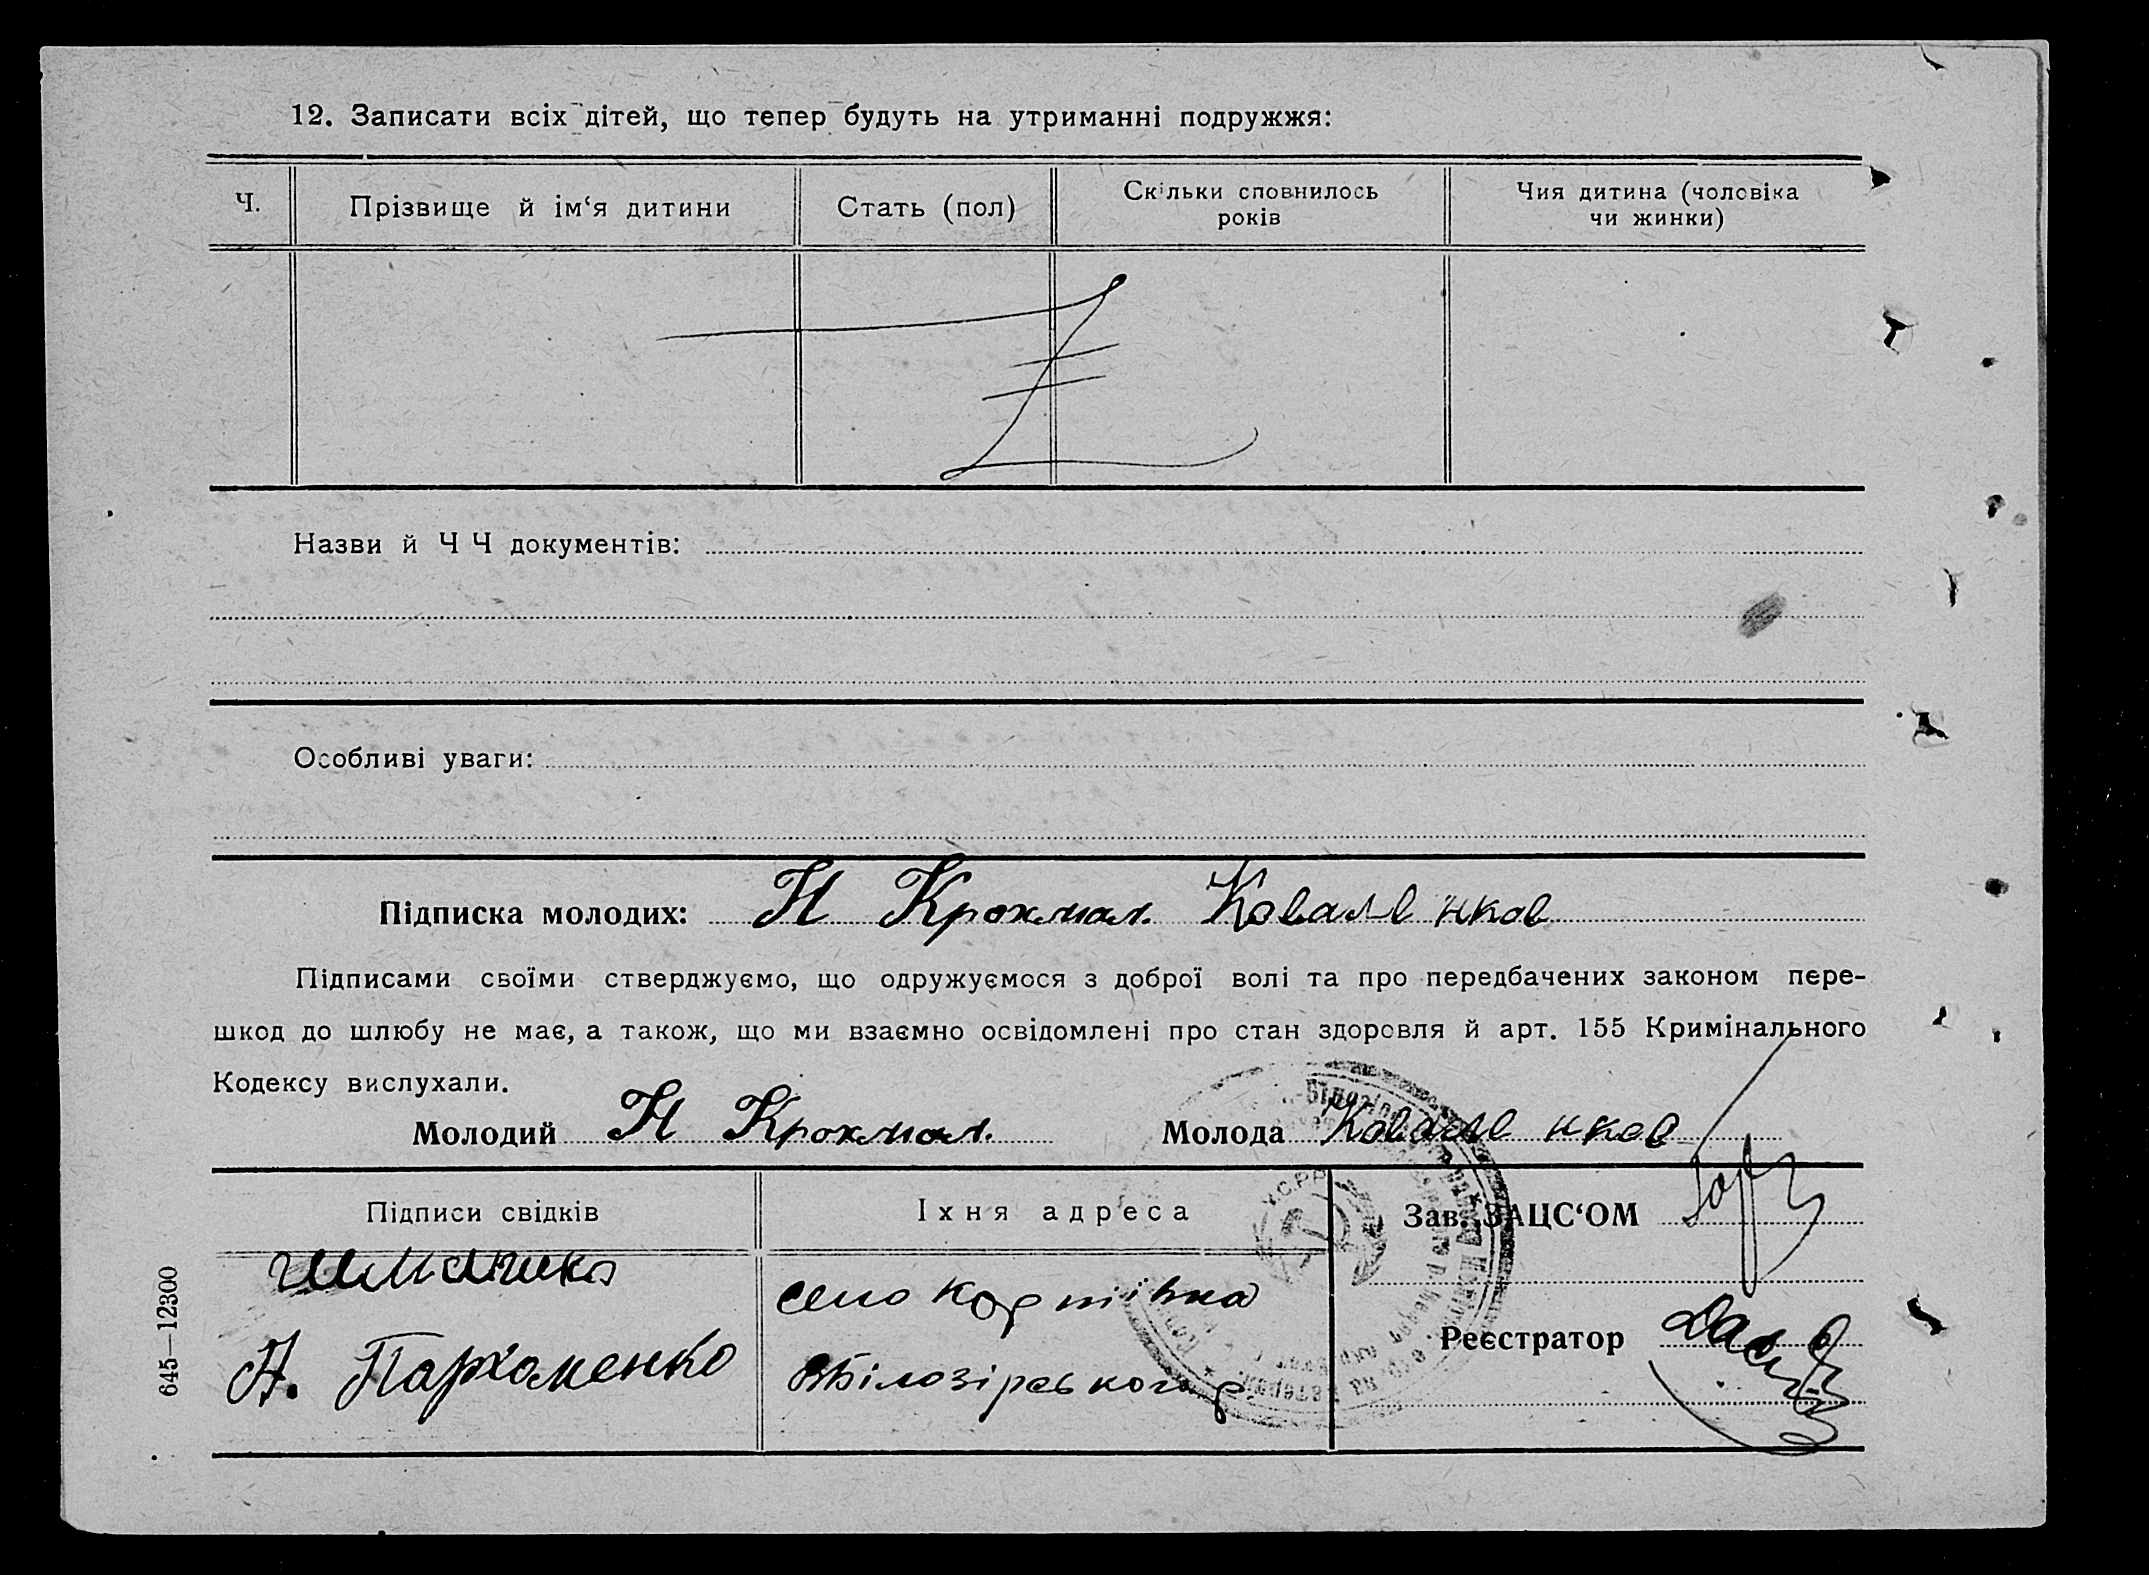 12. Записати всіх дітей, що тепер будуть на утриманні подружжя:
Ч.
Прізвище й ім‘я дитини
Стать (пол)
Скільки сповнилось
років
Чия дитина (чоловіка
чи жинки)
Назви й Ч Ч документів:
Особливі уваги:
Підписка молодих: Н Крохмал. Ковале нков
Підписами своїми стверджуємо, що одружуємося з доброї волі та про передбачених законом пере-
шкод до шлюбу не має, а також, що ми взаємно освідомлені про стан здоровля й арт. 155 Кримінального
Кодексу вислухали.
Молодий Н Крохмал. Молода Ковале нков
Підписи свідків
Їхня адреса
Зав. ЗАЦС‘ОМ
село
А. Пархоменко
Білозірського р
Реєстратор
У.С.Р.Р.
645—12300